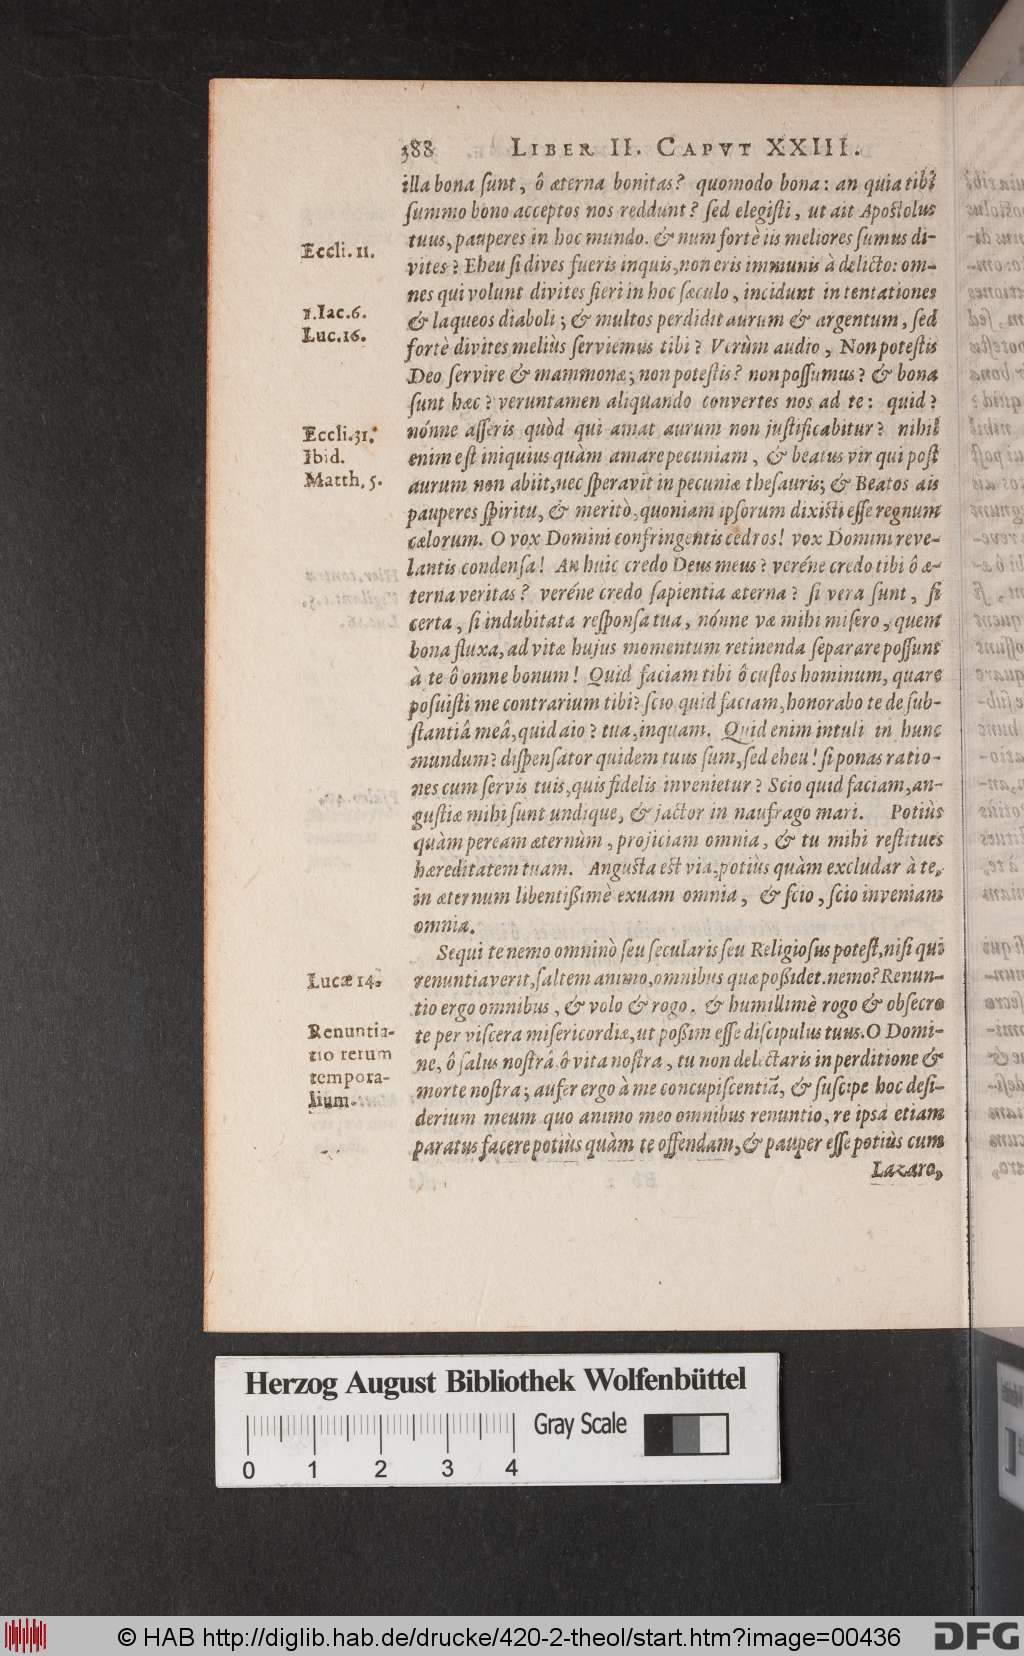 388 LIBER II. CAPVT XXIII.
illa bona sunt, ô æterna bonitas? quomodo bona: an quia tibi
summo bono acceptos nos reddunt? sed elegisti, ut ait Apostolus
tuus, pauperes in hoc mundo. & num fortè iis meliores sumus di-
Eccli. 11.
vites? Eheu si dives fueris inquis, non eris immunis à delicto: om-
nes qui volunt divites fieri in hoc sæculo, incidunt in tentationes
1. Iac. 6.
& laqueos diaboli; & multos perdidit aurum & argentum, sed
Luc. 16.
fortè divites meliùs serviemus tibi? Verùm audio, Non potestis
Deo servire & mammonæ; non potestis? non possumus? & bona
sunt hæc? veruntamen aliquando convertes nos ad te: quid?
Eccli. 31.
nónne asseris quòd qui amat aurum non justificabitur? nihil
Ibid.
enim est iniquius quàm amare pecuniam, & beatus vir qui post
Matth. 5.
aurum non abiit, nec speravit in pecuniæ thesauris; & Beatos ais
pauperes spiritu, & meritò, quoniam ipsorum dixisti esse regnum
cælorum. O vox Domini confringentis cedros! vox Domini reve-
lantis condensa! An huic credo Deus meus? veréne credo tibi ô æ-
terna veritas? veréne credo sapientia æterna? si vera sunt, si
certa, si indubitata responsa tua, nónne væ mihi misero, quem
bona fluxa, ad vitæ hujus momentum retinenda separare possunt
à te ô omne bonum! Quid faciam tibi ô custos hominum, quare
posuisti me contrarium tibi? scio quid faciam, honorabo te de sub-
stantiâ meâ, quid aio? tua, inquam. Quid enim intuli in hunc
mundum? dispensator quidem tuus sum, sed eheu! si ponas ratio-
nes cum servis tuis, quis fidelis invenietur? Scio quid faciam, an-
gustiæ mihi sunt undique, & jactor in naufrago mari. Potiùs
quàm peream æternùm, projiciam omnia, & tu mihi restitues
hæreditatem tuam. Angusta est via, potiùs quàm excludar à te,
in æternum libentissimè exuam omnia, & scio, scio inveniam
omnia.
Sequi te nemo omninò seu secularis seu Religiosus potest, nisi qui
Lucæ 14.
renuntiaverit, saltem animo, omnibus quæ possidet. nemo? Renun-
tio ergo omnibus, & volo & rogo. & humillimè rogo & obsecro
Renuntia-
tio rerum
tempora-
lium.
te per viscera misericordiæ, ut possim esse discipulus tuus. O Domi-
ne, ô salus nostra ô vita nostra, tu non delectaris in perditione &
morte nostra; aufer ergo à me concupiscentiã, & suscipe hoc desi-
derium meum quo animo meo omnibus renuntio, re ipsâ etiam
paratus facere potiùs quàm te offendam, & pauper esse potiùs cum
Lazaro,
Herzog August Bibliothek Wolfenbüttel
Gray Scale
0 1 2 3 4
© HAB http://diglib.hab.de/drucke/420-2-theol/start.htm?image=00436
DFG